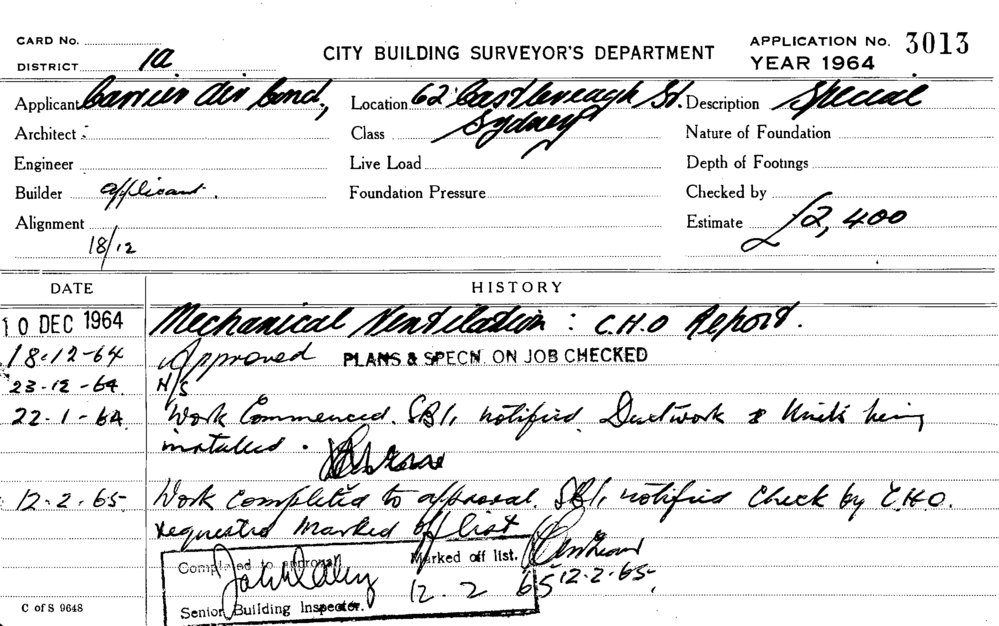 CARD No.
CITY BUILDING SURVEYOR'S DEPARTMENT
APPLICATION No. 3013
DISTRICT 1a
YEAR 1964
Applicant Carrier Air Cond., Location 62 Castlereagh St. Description Special
Sydney
Architect - Class Nature of Foundation
Engineer Live Load Depth of Footings
Builder applicant. Foundation Pressure Checked by
Alignment Estimate £2,400
18/12
DATE HISTORY
10 DEC 1964 Mechanical Ventilation: C.H.O Report.
18-12-64 Approved PLANS & SPECN. ON JOB CHECKED
23-12-64 N/S
22-1-64 Work Commenced. SBI, notified. Ductwork & Units being
installed.
12.2.65 Work completed to approval. SBI, notified Check by C.H.O.
requested Marked off list
Completed to approval Marked off list.
12.2.65 12.2.65
Senior Building Inspector.
C of S 9648